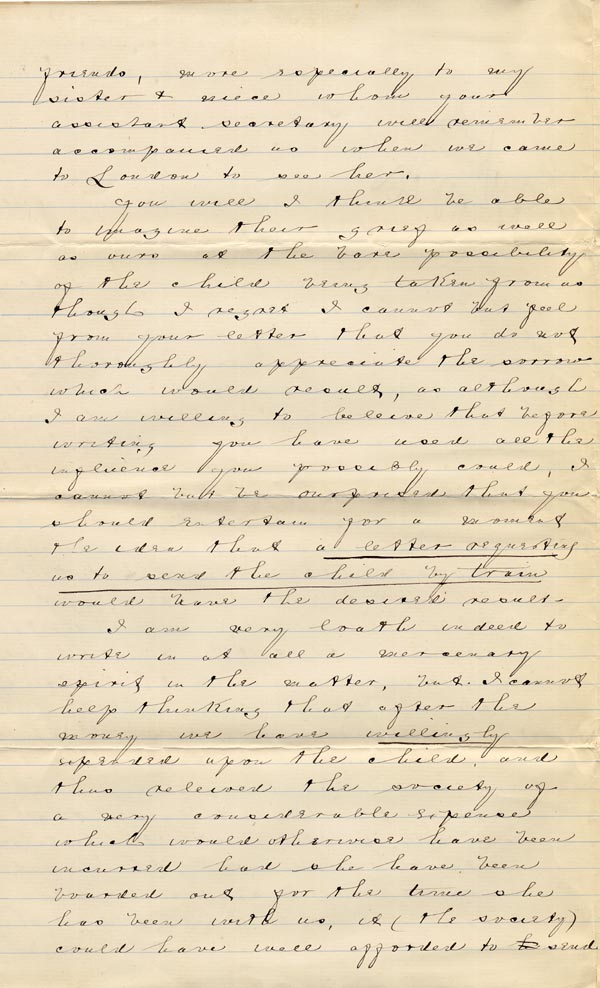 friends, more especially to my
sister & niece whom your
assistant secretary will remember
accompanied us when we came
to London to see her.
You will I think be able
to imagine their grief as well
as ours at the bare possibility
of the child being taken from us
though I regret I cannot but feel
from your letter that you do not
thoroughly appreciate the sorrow
which would result, as although
I am willing to beleive that before
writing you have used all the
influence you possibly could, I
cannot but be surprised that you
should entertain for a moment
the idea that a letter requesting
us to send the child by train
would have the desired result.
I am very loath indeed to
write in at all a mercenary
spirit in the matter, but I cannot
help thinking that after the
money we have willingly
expended upon the child, and
thus releived the society of
a very considerable expense
which would otherwise have been
incurred had she have been
boarded out for the time she
has been with us, it (the society)
could have well afforded to send